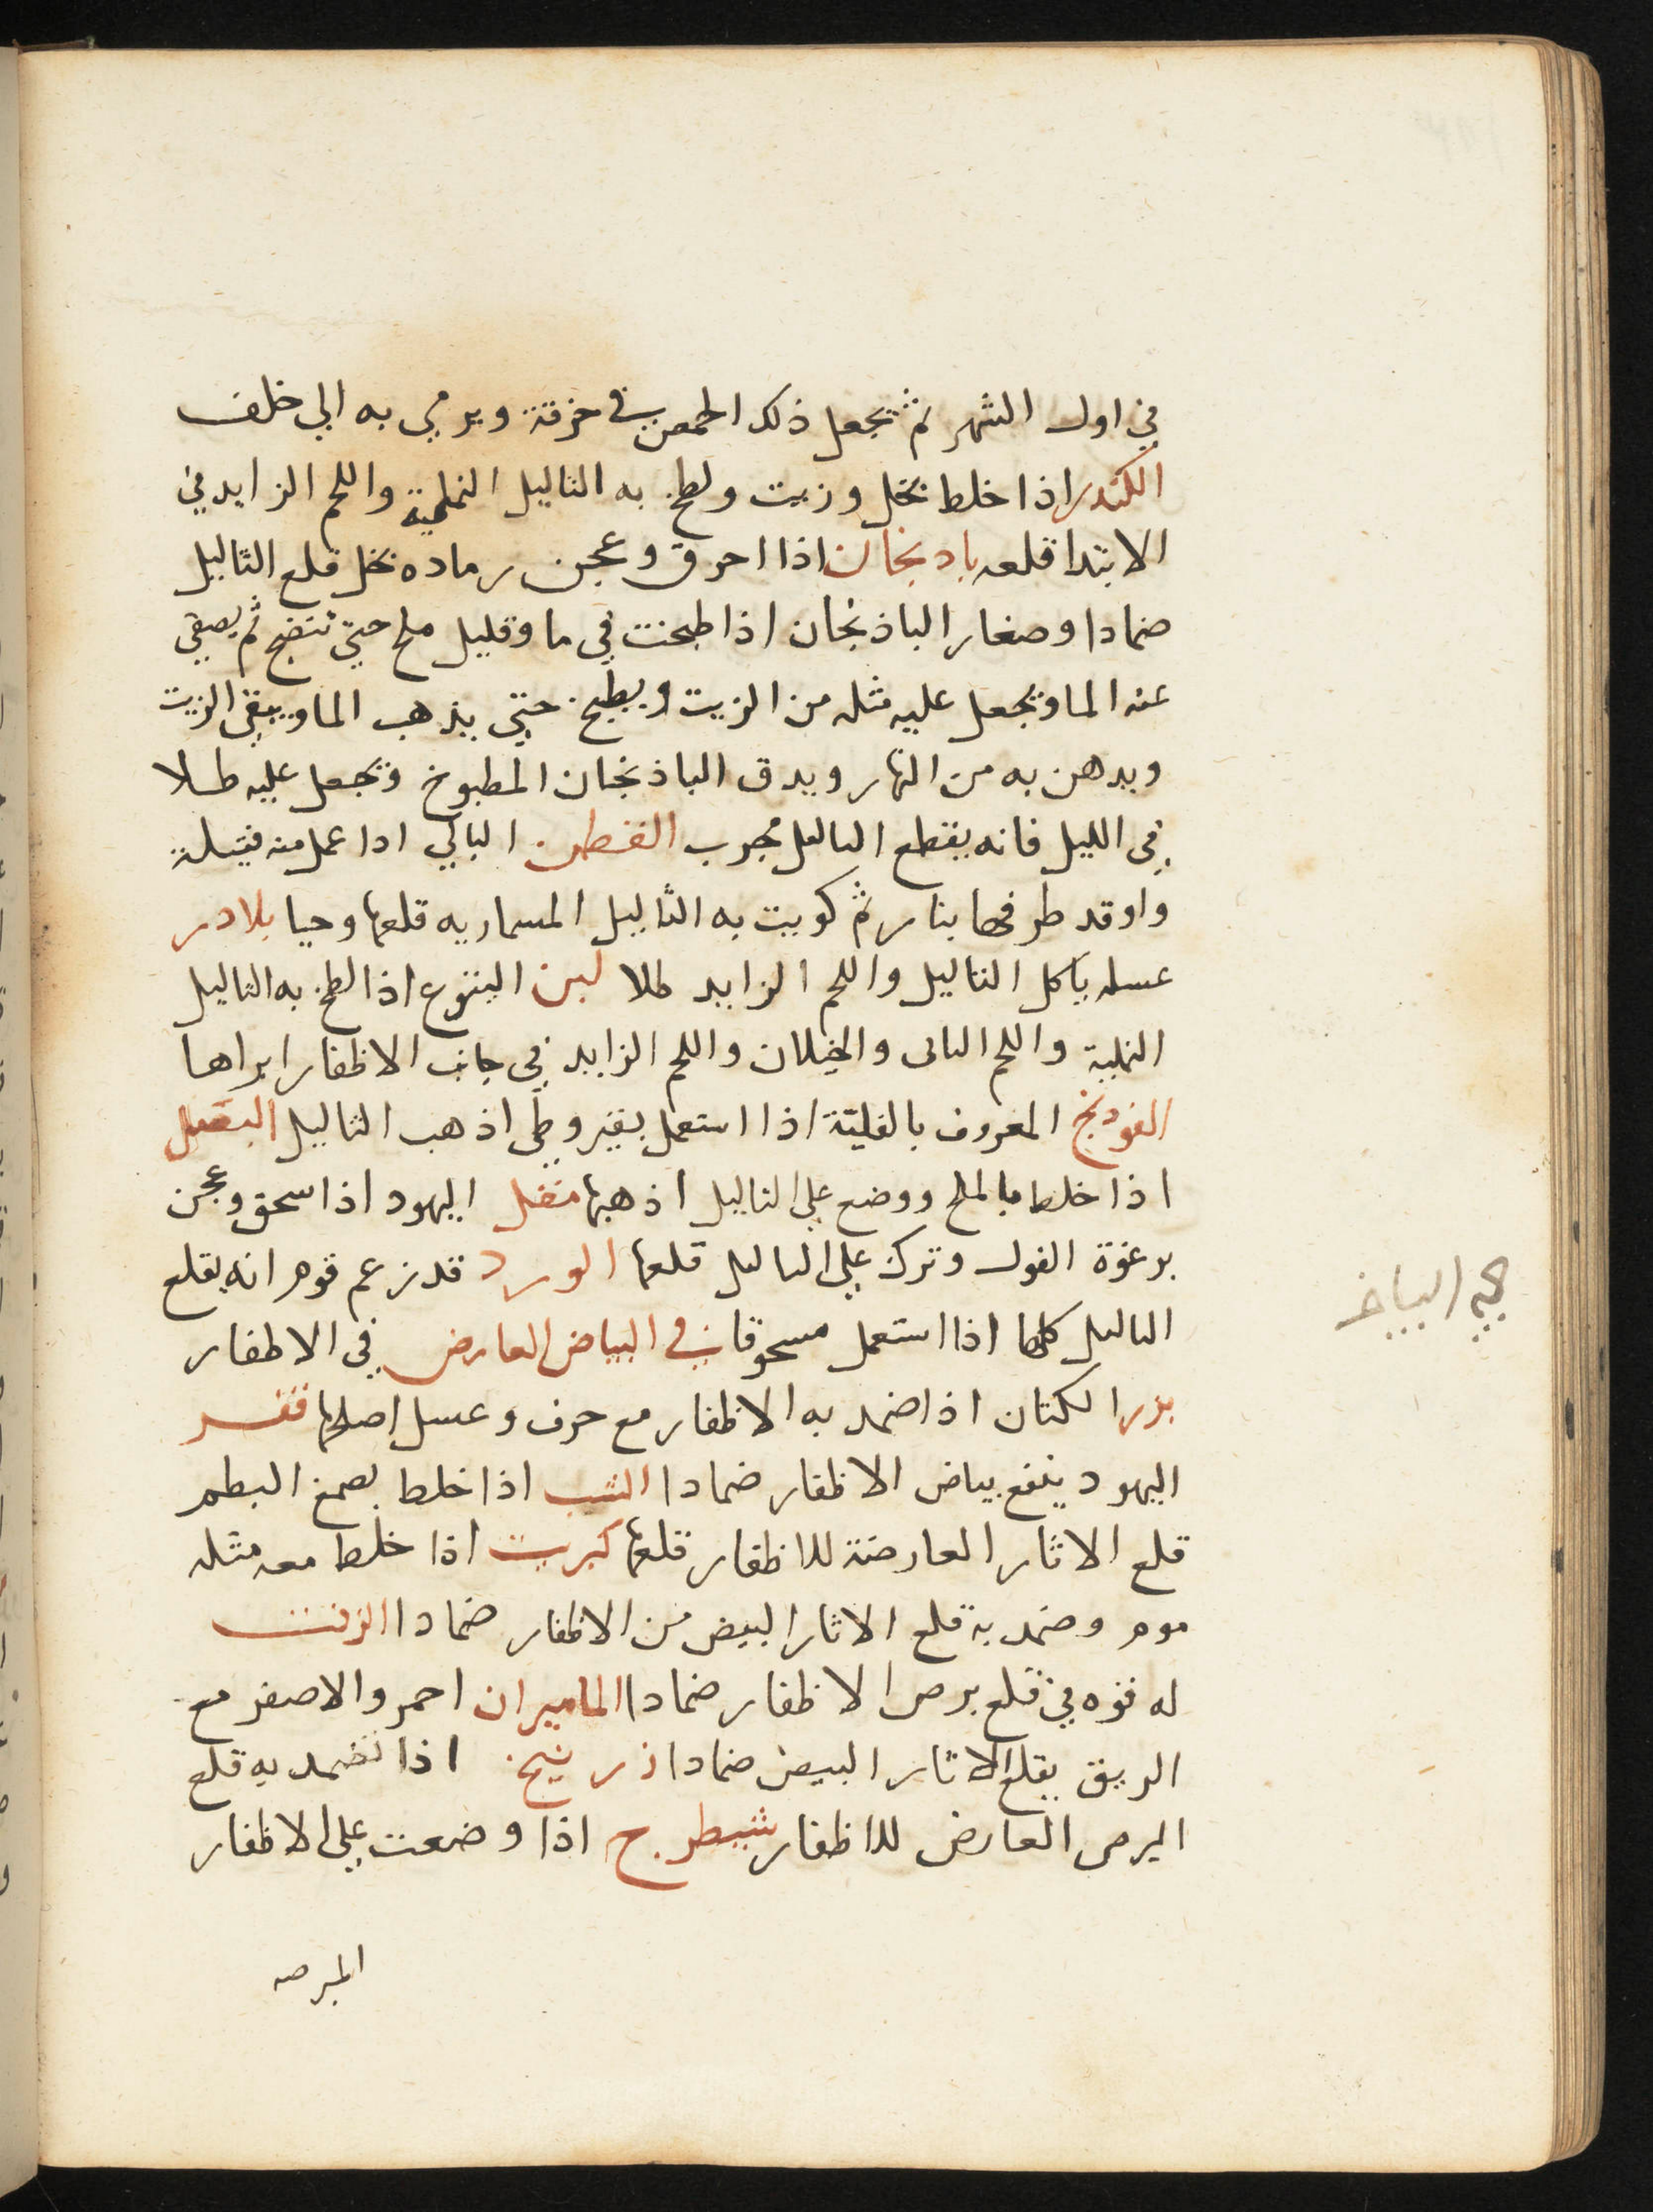 في اول الشهر ثم تجعل ذلك الحمص في خرقة ويرمي به الي خلف
الكندر اذا خلط بخل وزيت ولطخ به الثاليل النملية واللحم الزايد في
الابتدا قلعه بادنجان اذا احرق وعجن رماده بخل قلع الثاليل
ضمادا وصغار الباذنجان اذا طبخت في ما وقليل ملح حتي تنضج ثم يصفي
عنه الما وتجعل عليه مثله من الزيت ويطبخ حتي يذهب الما ويبقي الزيت
ويدهن به من النهار ويدق الباذنجان المطبوخ وتجعل عليه طلا
في الليل فانه يقطع الثاليل مجرب القطن البالي اذا عمل منه فتيلة
واوقد طرفها بنار ثم كويت به الثاليل المسماريه قلعها وحيا بلادر
عسله ياكل الثاليل واللحم الزايد طلا لبن اليتوع اذا لطخ به الثاليل
النملية واللحم الناتى والخيلان واللحم الزايد في جانب الاظفار ابراها
الفودنج المعروف بالفلية اذا استعمل بقيروطي اذهب الثاليل البصل
اذا خلط بالملح ووضع علي الثاليل اذهبها مقل اليهود اذا سحق وعجن
برغوة الفول وترك علي الثاليل قلعها الورد قد زعم قوم انه يقلع
الثاليل كلها اذا استعمل مسحوقا في البياض العارض في الاظفار
بزر الكتان اذا ضمد به الاظفار مع حرف وعسل اصلحها قفر
اليهود ينفع بياض الاظفار ضمادا الشب اذا خلط بصمغ البطم
قلع الاثار العارضة للاظفار قلعها كبريت اذا خلط معه مثله
موم وضمد به قلع الاثار البيض من الاظفار ضمادا الزفت
له قوه في قلع برص الاظفار ضمادا الماميران احمر والاصفر مع
الريق يقلع الاثار البيض ضمادا زرنيخ اذا تضمد به قلع
البرص العارض للاظفار شيطرج اذا وضعت علي الاظفار
البرصه
البياض